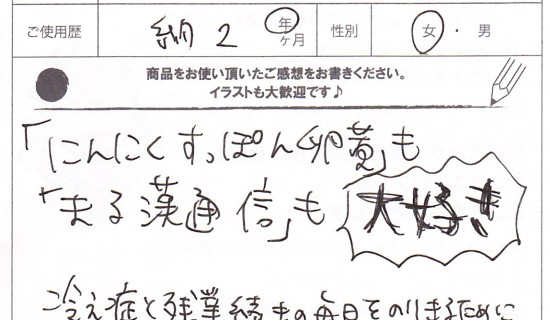 ご使用歴 約2 年 ヶ月 性別 女・男
商品をお使い頂いたご感想をお書きください。
イラストも大歓迎です♪
「にんにくすっぽん卵黄」も
「まる漢通信」も 大好き
冷え症と残業続きの毎日をのりきるために